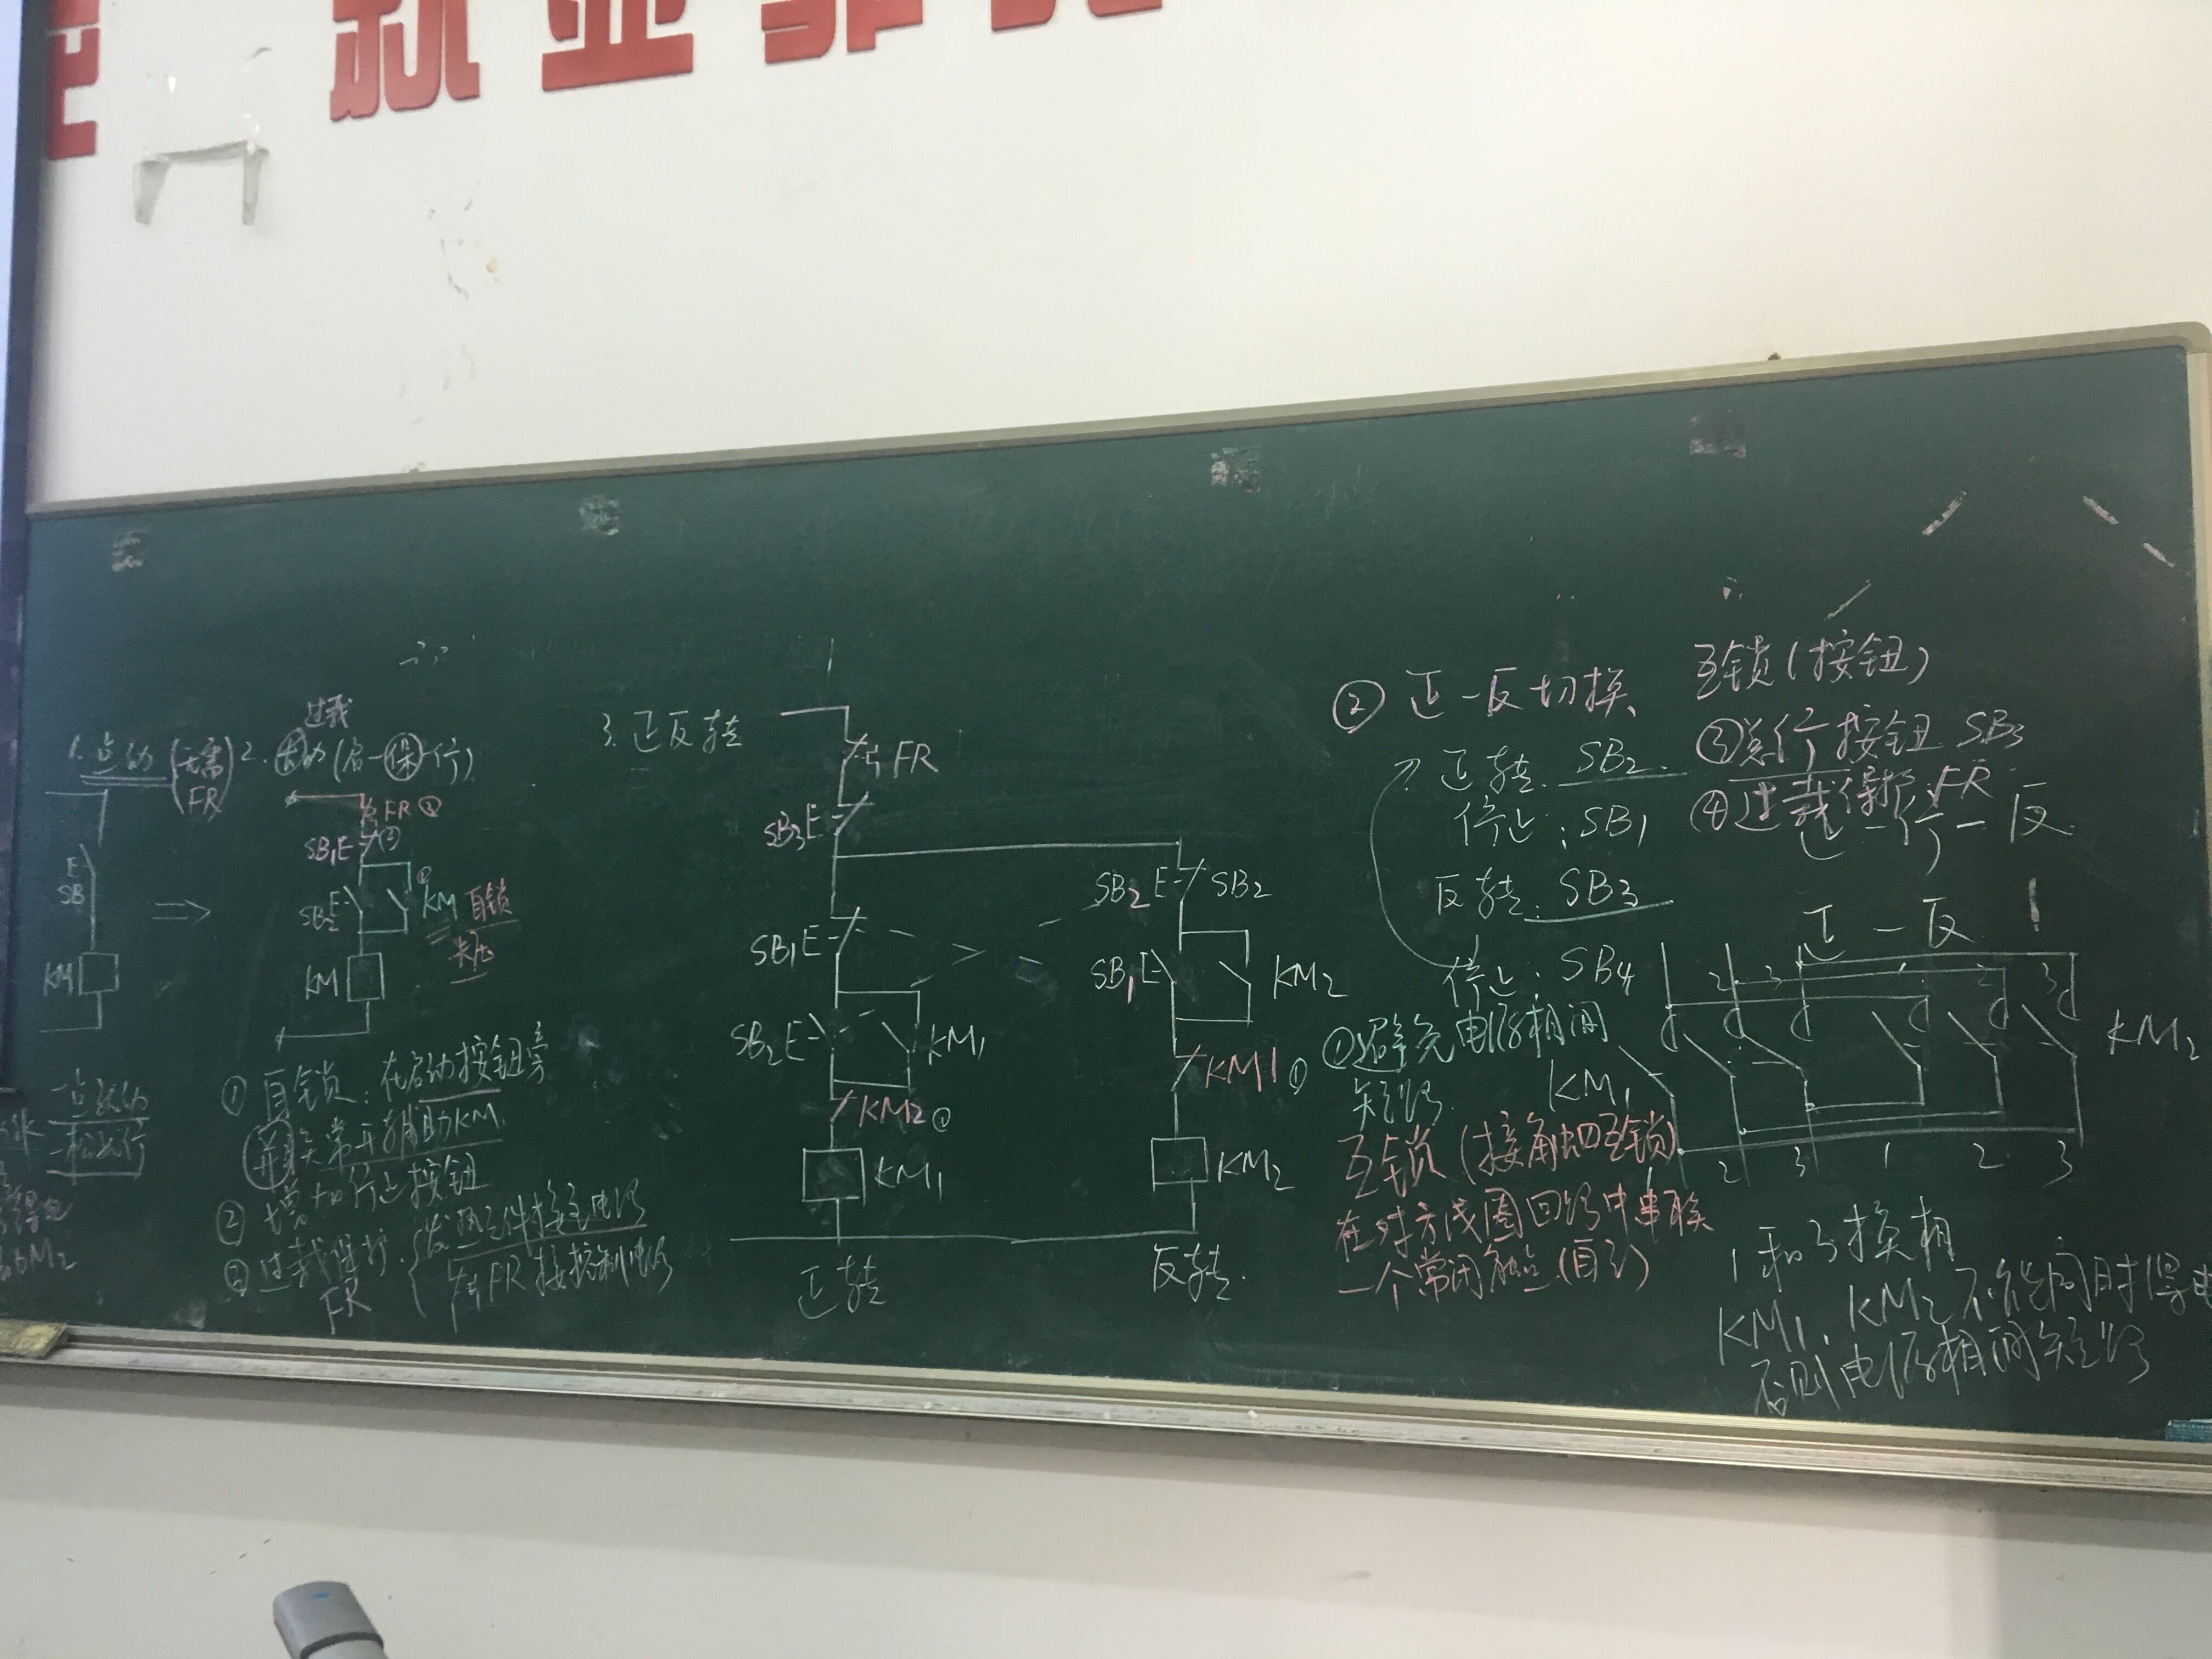 就业
1.点动(无需FR)
2.长动(启-保-停)
过载
FR③
SB1E ②
①
SB2E
KM 自锁
失压
KM
E
SB
KM
①自锁:在启动按钮旁
并联常开辅助KM
②增加停止按钮
③过载保护
FR
发热元件接主电路
FR接控制电路
一点就动
一松就停
3.正反转
FR
SB3E
SB1E
SB2E
KM1
KM2①
KM1
正转
SB2E SB2
SB1E
KM2
KM1①
KM2
反转.
②正-反切换
正转.SB2.
停止:SB1
反转:SB3
停止:SB4
①避免电源相间
短路.
互锁(接触器互锁)
在对方线圈回路中串联
一个常闭触点(自己)
互锁(按钮)
③总停按钮SB3
④过载保护:FR
正-停-反
正-反
2 3 1 2 3
KM1
KM2
1 2 3 1 2 3
1和3换相
KM1、KM2不能同时得电
否则电源相间短路